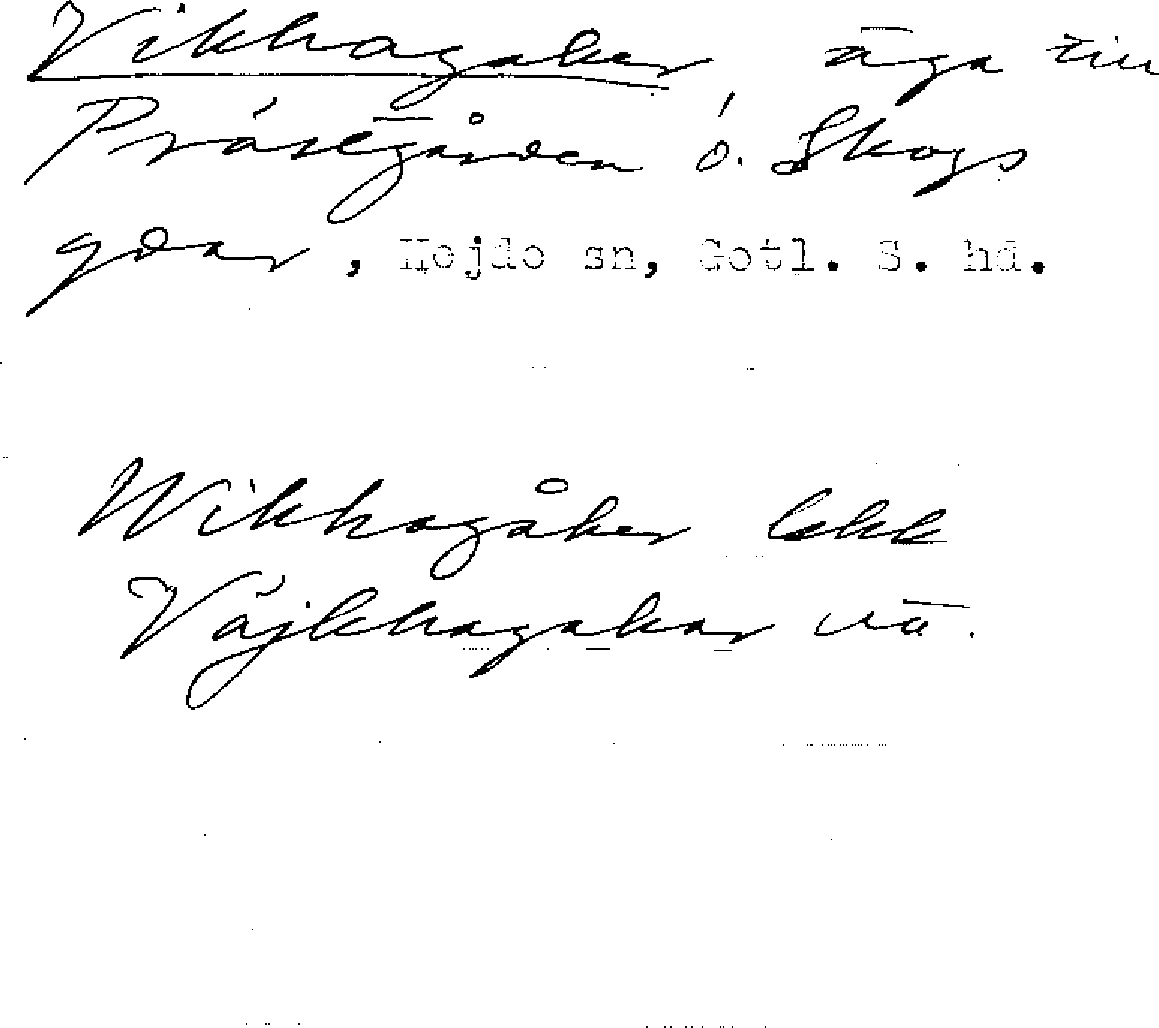 Vikhagaker äga till
Prästgården o. Skogs
gdar, Hejde sn, Gotl. S. hd.
Wikhagåker
Väjkhagakar